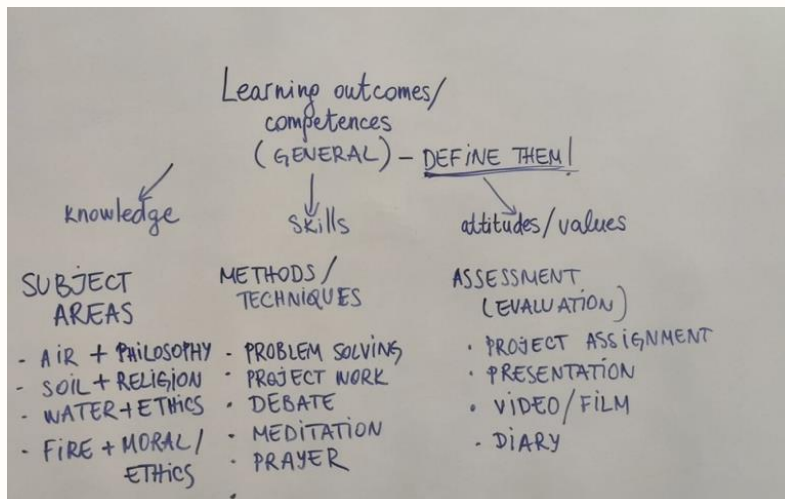 Learning outcomes/
competences
(GENERAL) – DEFINE THEM!
knowledge
skills
attitudes/values
SUBJECT
AREAS
- AIR + PHILOSOPHY
- SOIL + RELIGION
- WATER + ETHICS
- FIRE + MORAL/
ETHICS
METHODS/
TECHNIQUES
- PROBLEM SOLVING
• PROJECT WORK
• DEBATE
• MEDITATION
• PRAYER
•
ASSESSMENT
(EVALUATION)
• PROJECT ASSIGNMENT
• PRESENTATION
• VIDEO/FILM
• DIARY